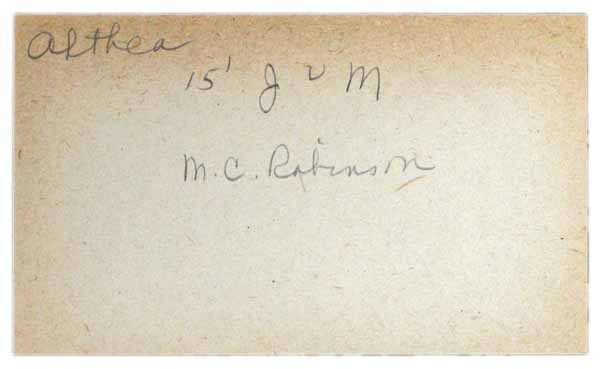 Althea
15' J v M
M.C. Robinson